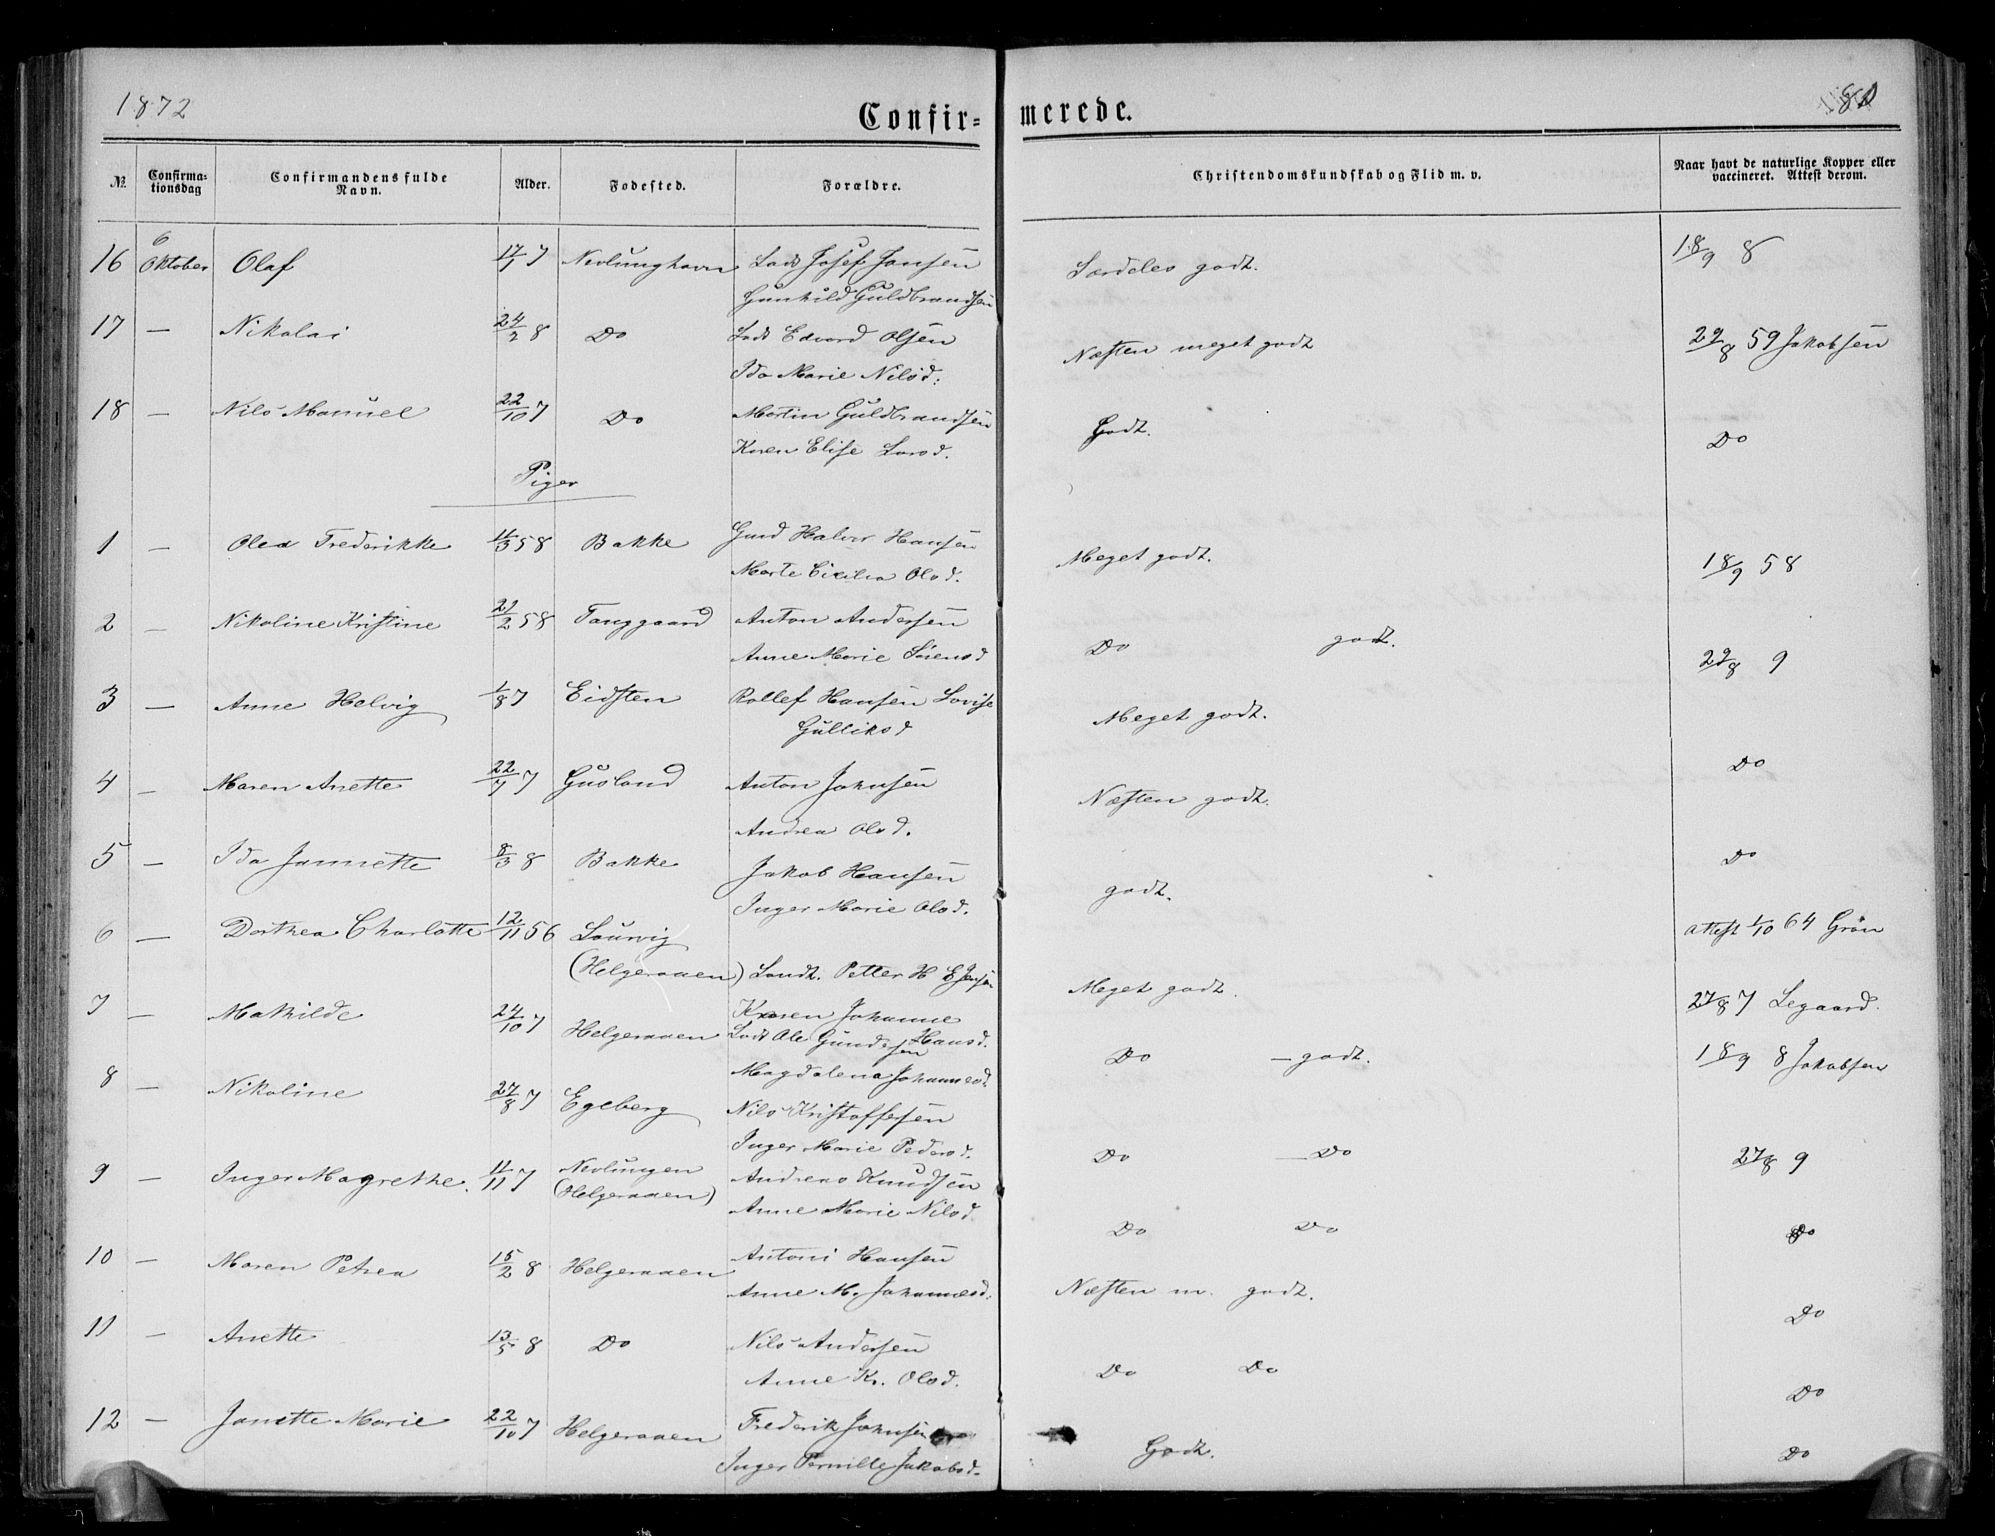 1872
Confir- merede.
81
№ Confirma- tionsdag Confirmandens fulde Navn. Alder. Fødested. Forældre. Christendomskundskab og Flid m. v. Naar havt de naturlige Kopper eller vaccineret. Attest derom.
16 6 Oktober Olaf 17/1 7 Nevlunghavn Lods Josef Jansen Særdeles godt. 18/9 8
Gunhild Guldbrandsen
17 — Nikolai 24/2 8 Do Lods Edvard Olsen Næsten meget godt 29/8 59 Jakobsen
Ida Marie Nilsd.
18 — Nils Manuel 22/10 7 Do Martin Guldbrandsen Godt. Do
Karen Elise Larsd.
Piger
1 — Olea Frederikke 11/3 58 Bakke Gmd Halvor Hansen Meget godt. 18/9 58
Marte Cicilia Olsd.
2 — Nikoline Kristine 21/2 58 Tanggaard Anton Andersen Do godt. 29/8 9
Anne Marie Sørensd
3 — Anne Helvig 1/8 7 Eidsten Rollef Hansen Lovise Meget godt. Do
Gulliksd
4 — Maren Anette 22/7 7 Gusland Anton Johnsen Næsten godt. Do
Andrea Olsd.
5 — Ida Jannette 8/3 8 Bakke Jakob Hansen godt.
Inger Marie Olsd.
6 — Dorthea Charlotte 12/11 56 Laurvig attest 1/10 64 Grøn
(Helgeraaen) Landt. Petter H E Jensen Meget godt.
7 — Mathilde 24/10 7 Helgeraaen Karen Johanne Hansd. 27/8 7 Legaard.
Lods Ole Gundersen Do — godt. 18/9 8 Jakobsen
Magdalena Johannesd.
8 — Nikoline 27/8 7 Egeberg Nils Kristoffersen Do — Do 27/8 9
Inger Marie Pedersd.
9 — Inger Magrethe. 11/11 7 Nevlungen Andreas Knudsen Do Do Do
(Helgeraaen) Anne Marie Nilsd.
10 — Maren Petrea 15/2 8 Helgeraaen Antoni Hansen Næsten m. godt. Do
Anne M. Johannesd.
11 — Anette 13/5 8 Do Nils Andersen Do Do Do
Anne K. Olsd.
12 — Janette Marie 22/10 7 Helgeraaen Frederik Johnsen Godt. Do
Inger Pernille Jakobsd.